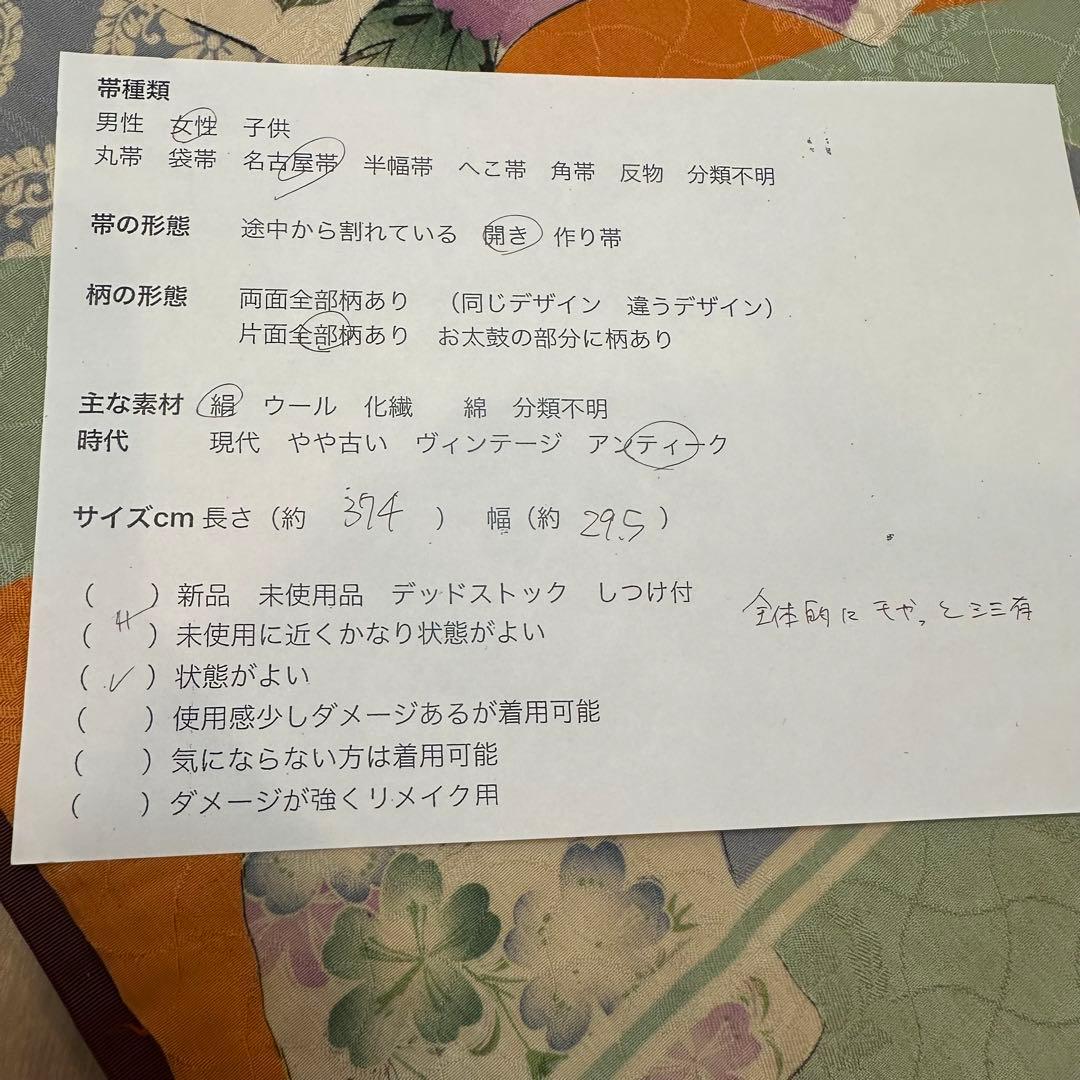 帯種類
男性 女性 子供
丸帯 袋帯 名古屋帯 半幅帯 へこ帯 角帯 反物 分類不明
帯の形態 途中から割れている 開き 作り帯
柄の形態 両面全部柄あり (同じデザイン 違うデザイン)
片面全部柄あり お太鼓の部分に柄あり
主な素材 絹 ウール 化繊 綿 分類不明
時代 現代 やや古い ヴィンテージ アンティーク
サイズcm 長さ(約 374 ) 幅(約 29.5 )
( )新品 未使用品 デッドストック しつけ付
( )未使用に近くかなり状態がよい
全体的にモやっとシミ有
( ✓ )状態がよい
( )使用感少しダメージあるが着用可能
( )気にならない方は着用可能
( )ダメージが強くリメイク用